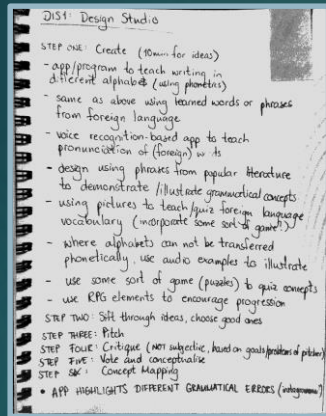 DIS1: Design Studio
STEP ONE: Create (10min for ideas)
- app/program to teach writing in
different alphabet (using phonetics)
- same as above using learned words or phrases
from foreign language
- voice recognition-based app to teach
pronunciation of (foreign)
- design using phrases from popular literature
to demonstrate / illustrate grammatical concepts
- using pictures to teach/quiz foreign language
vocabulary (incorporate some sort of game?)
- where alphabets can not be transferred
phonetically, use audio examples to illustrate
- use some sort of game (puzzles) to quiz concepts
- use RPG elements to encourage progression
STEP TWO: Sift through ideas, choose good ones
STEP THREE: Pitch
STEP FOUR: Critique (NOT subjective, based on goals/problems of pitcher)
STEP FIVE: Vote and conceptualise
STEP SIX: Concept Mapping
• APP HIGHLIGHTS DIFFERENT GRAMMATICAL ERRORS